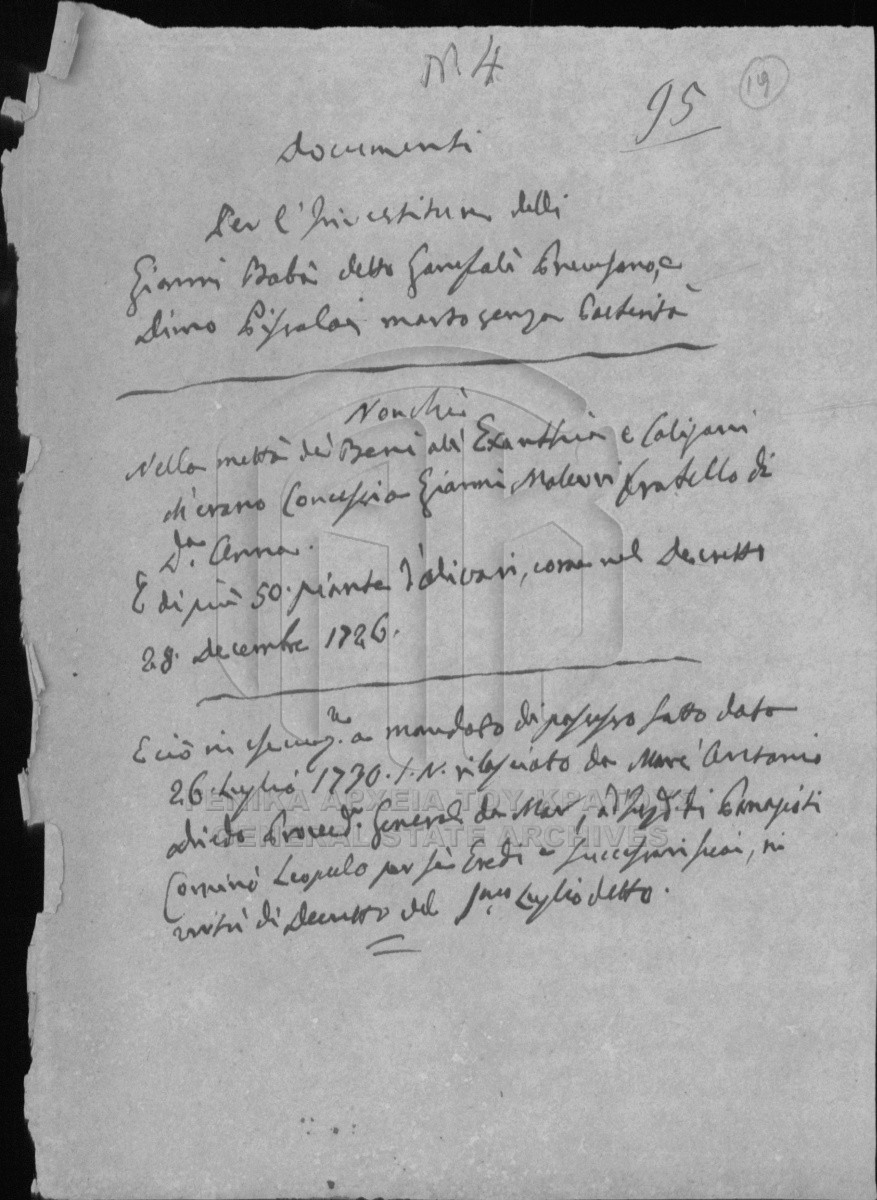 N 4
95
19
Documenti
Per l'Investitura delli
Gianni Babà detto Garufalà Prevesano, e
Dimo morto senza Posterità
Nonchè
Nella mettà dei Beni di Exanthia e Caligoni
ch'erano Concessi a Gianni fratello di
D.na Anna.
E di più 50. piante d'Olivari, come nel Decretto
28. Decembre 1726.
E ciò in a mandato di possesso fatto dato
26. Luglio 1730. S. N. rilasciato da Marc' Antonio
Diedo Proved.r General da Mar, di Panagioti
Leopulo per sè Eredi e Successori suoi, in
virtù di Decretto del Luglio detto.
ΓΕΝΙΚΑ ΑΡΧΕΙΑ ΤΟΥ ΚΡΑΤΟΥΣ
GENERAL STATE ARCHIVES